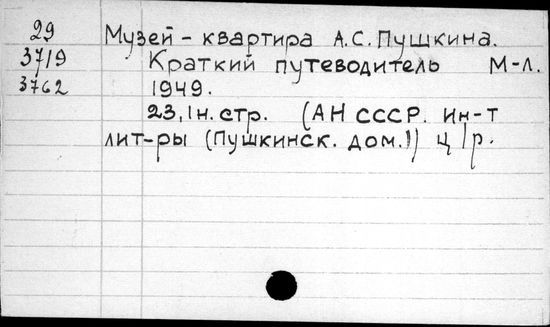 29 Музей - квартира А.С. Пушкина.
3719 Краткий путеводитель М-Л.
3762 1949.
23, 1н. стр. (АН СССР. Ин-т
лит-ры (Пушкинск. дом.)) ц/р.